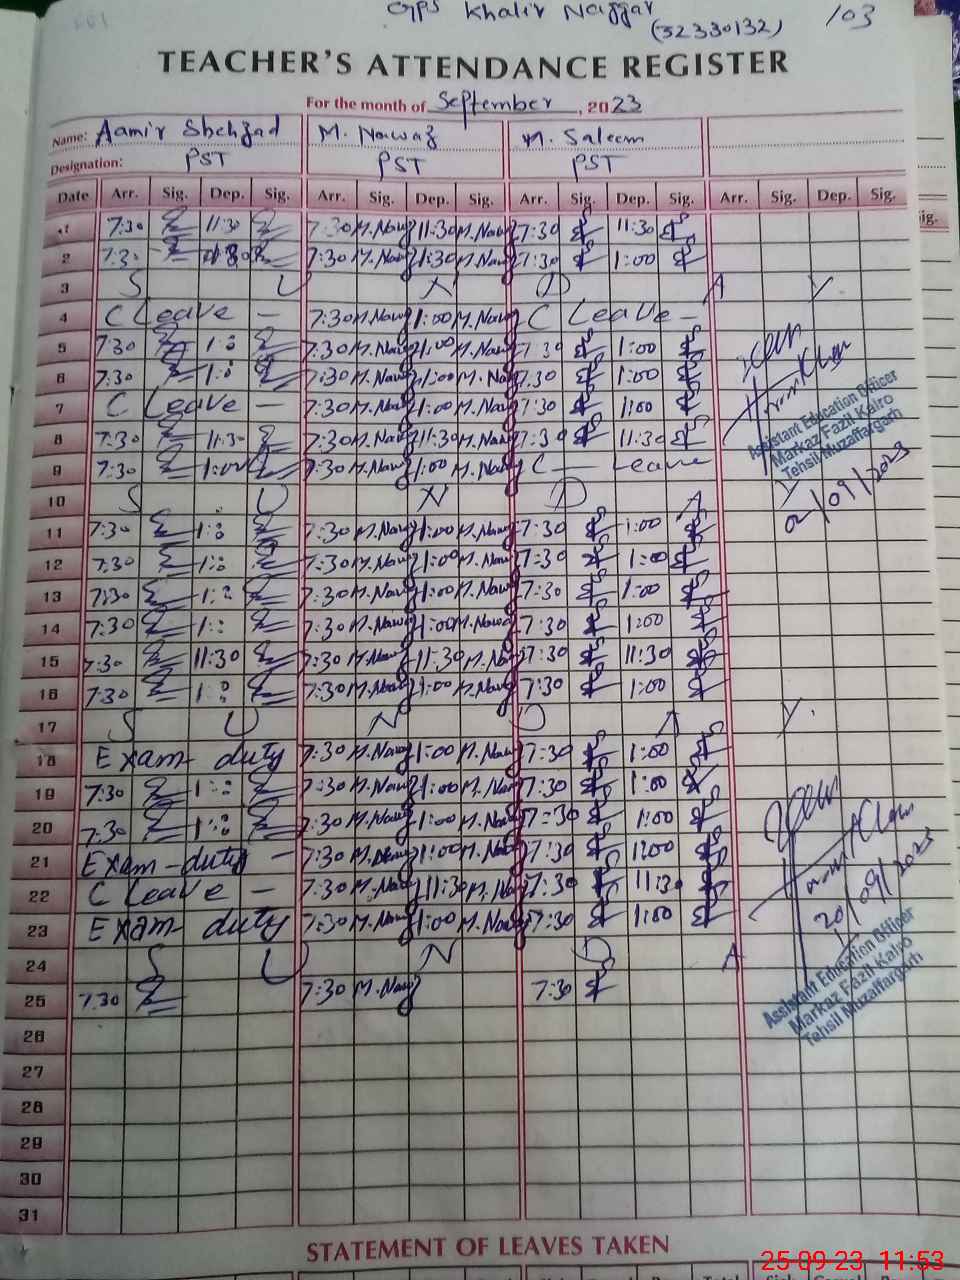 GPS Khalir Naggar
(32330132)
103
TEACHER'S ATTENDANCE REGISTER
For the month of September, 2023
Name: Aamir Shehzad M. Nawaz M. Saleem
Designation: PST PST PST
Date Arr. Sig. Dep. Sig. Arr. Sig. Dep. Sig. Arr. Sig. Dep. Sig. Arr. Sig. Dep. Sig.
1 7:30 11:30 7:30 M.Nawaz 11:30 M.Nawaz 7:30 11:30
2 7:30 7:30 M.Nawaz 11:30 M.Nawaz 7:30 1:00
3 S U N D A Y
4 C Leave - 7:30 M.Nawaz 1:00 M.Nawaz C Leave -
5 7:30 1:: 7:30 M.Nawaz 1:00 M.Nawaz 7:30 1:00
6 7:30 1:: 7:30 M.Nawaz 1:00 M.Nawaz 7:30 1:00
7 C Leave - 7:30 M.Nawaz 1:00 M.Nawaz 7:30 1:00
8 7:30 11:30 7:30 M.Nawaz 11:30 M.Nawaz 7:30 11:30
9 7:30 1:00 7:30 M.Nawaz 1:00 M.Nawaz C - Leave
10 S U N D A Y
11 7:30 1:: 7:30 M.Nawaz 1:00 M.Nawaz 7:30 1:00
12 7:30 1:: 7:30 M.Nawaz 1:00 M.Nawaz 7:30 1:00
13 7:30 1:: 7:30 M.Nawaz 1:00 M.Nawaz 7:30 1:00
14 7:30 1:: 7:30 M.Nawaz 1:00 M.Nawaz 7:30 1:00
15 7:30 11:30 7:30 M.Nawaz 11:30 M.Nawaz 7:30 11:30
16 7:30 1:: 7:30 M.Nawaz 1:00 M.Nawaz 7:30 1:00
17 S U N D A Y
18 Exam duty 7:30 M.Nawaz 1:00 M.Nawaz 7:30 1:00
19 7:30 1:: 7:30 M.Nawaz 1:00 M.Nawaz 7:30 1:00
20 7:30 1:: 7:30 M.Nawaz 1:00 M.Nawaz 7:30 1:00
21 Exam-duty - 7:30 M.Nawaz 1:00 M.Nawaz 7:30 1:00
22 C Leave - 7:30 M.Nawaz 11:30 M.Nawaz 7:30 11:30
23 Exam duty 7:30 M.Nawaz 1:00 M.Nawaz 7:30 1:00
24 S U N D A
25 7:30 7:30 M.Nawaz 7:30
26
27
28
29
30
31
Assistant Education Officer
Markaz Fazil Kalro
Tehsil Muzaffargarh
/09/2023
Assistant Education Officer
Markaz Fazil Kalro
Tehsil Muzaffargarh
20/09/2023
STATEMENT OF LEAVES TAKEN
25 09 23 11:53